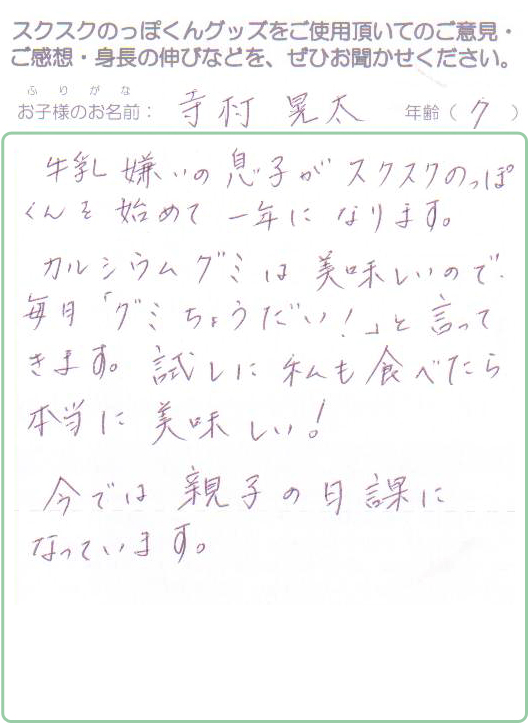 スクスクのっぽくんグッズをご使用頂いてのご意見・
ご感想・身長の伸びなどを、ぜひお聞かせください。
ふりがな
お子様のお名前： 寺村 晃太 年齢（7）
牛乳嫌いの息子がスクスクのっぽ
くんを始めて一年になります。
カルシウムグミは美味しいので
毎日「グミちょうだい！」と言って
きます。試しに私も食べたら
本当に美味しい！
今では親子の日課に
なっています。